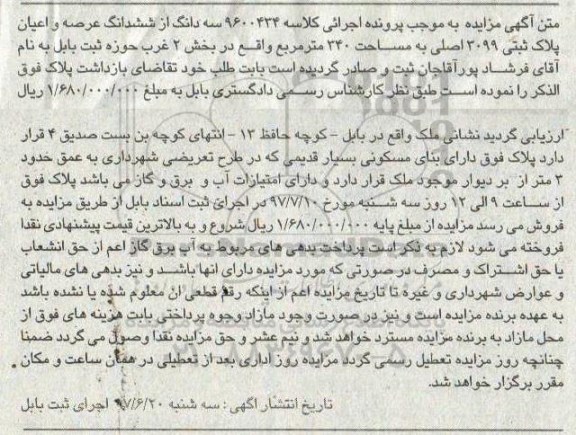 متن آگهی مزایده به موجب پرونده اجرائی کلاسه ۹۶۰۰۴۳۴ سه دانگ از ششدانگ عرصه و اعیان
پلاک ثبتی ۳۰۹۹ اصلی به مساحت ۳۴۰ مترمربع واقع در بخش ۲ غرب حوزه ثبت بابل به نام
آقای فرشاد پورآقاجان ثبت و صادر گردیده است بابت طلب خود تقاضای بازداشت پلاک فوق
الذکر را نموده است طبق نظر کارشناس رسمی دادگستری بابل به مبلغ ۱/۶۸۰/۰۰۰/۰۰۰ ریال
ارزیابی گردید نشانی ملک واقع در بابل - کوچه حافظ ۱۳ - انتهای کوچه بن بست صدیق ۴ قرار
دارد پلاک فوق دارای بنای مسکونی بسیار قدیمی که در طرح تعریضی شهرداری به عمق حدود
۳ متر از بر دیوار موجود ملک قرار دارد و دارای امتیازات آب و برق و گاز می باشد پلاک فوق
از ساعت ۹ الی ۱۲ روز سه شنبه مورخ ۹۷/۷/۱۰ در اجرای ثبت اسناد بابل از طریق مزایده به
فروش می رسد مزایده از مبلغ پایه ۱/۶۸۰/۰۰۰/۰۰۰ ریال شروع و به بالاترین قیمت پیشنهادی نقدا
فروخته می شود لازم به ذکر است پرداخت بدهی های مربوط به آب برق گاز اعم از حق انشعاب
یا حق اشتراک و مصرف در صورتی که مورد مزایده دارای انها باشد و نیز بدهی های مالیاتی
و عوارض شهرداری و غیره تا تاریخ مزایده اعم از اینکه رقم قطعی ان معلوم شده یا نشده باشد
به عهده برنده مزایده است و نیز در صورت وجود مازاد وجوه پرداختی بابت هزینه های فوق از
محل مازاد به برنده مزایده مسترد خواهد شد و نیم عشر و حق مزایده نقدا وصول می گردد ضمنا
چنانچه روز مزایده تعطیل رسمی گردد مزایده روز اداری بعد از تعطیلی در همان ساعت و مکان
مقرر برگزار خواهد شد.
تاریخ انتشار اگهی: سه شنبه ۹۷/۶/۲۰ اجرای ثبت بابل